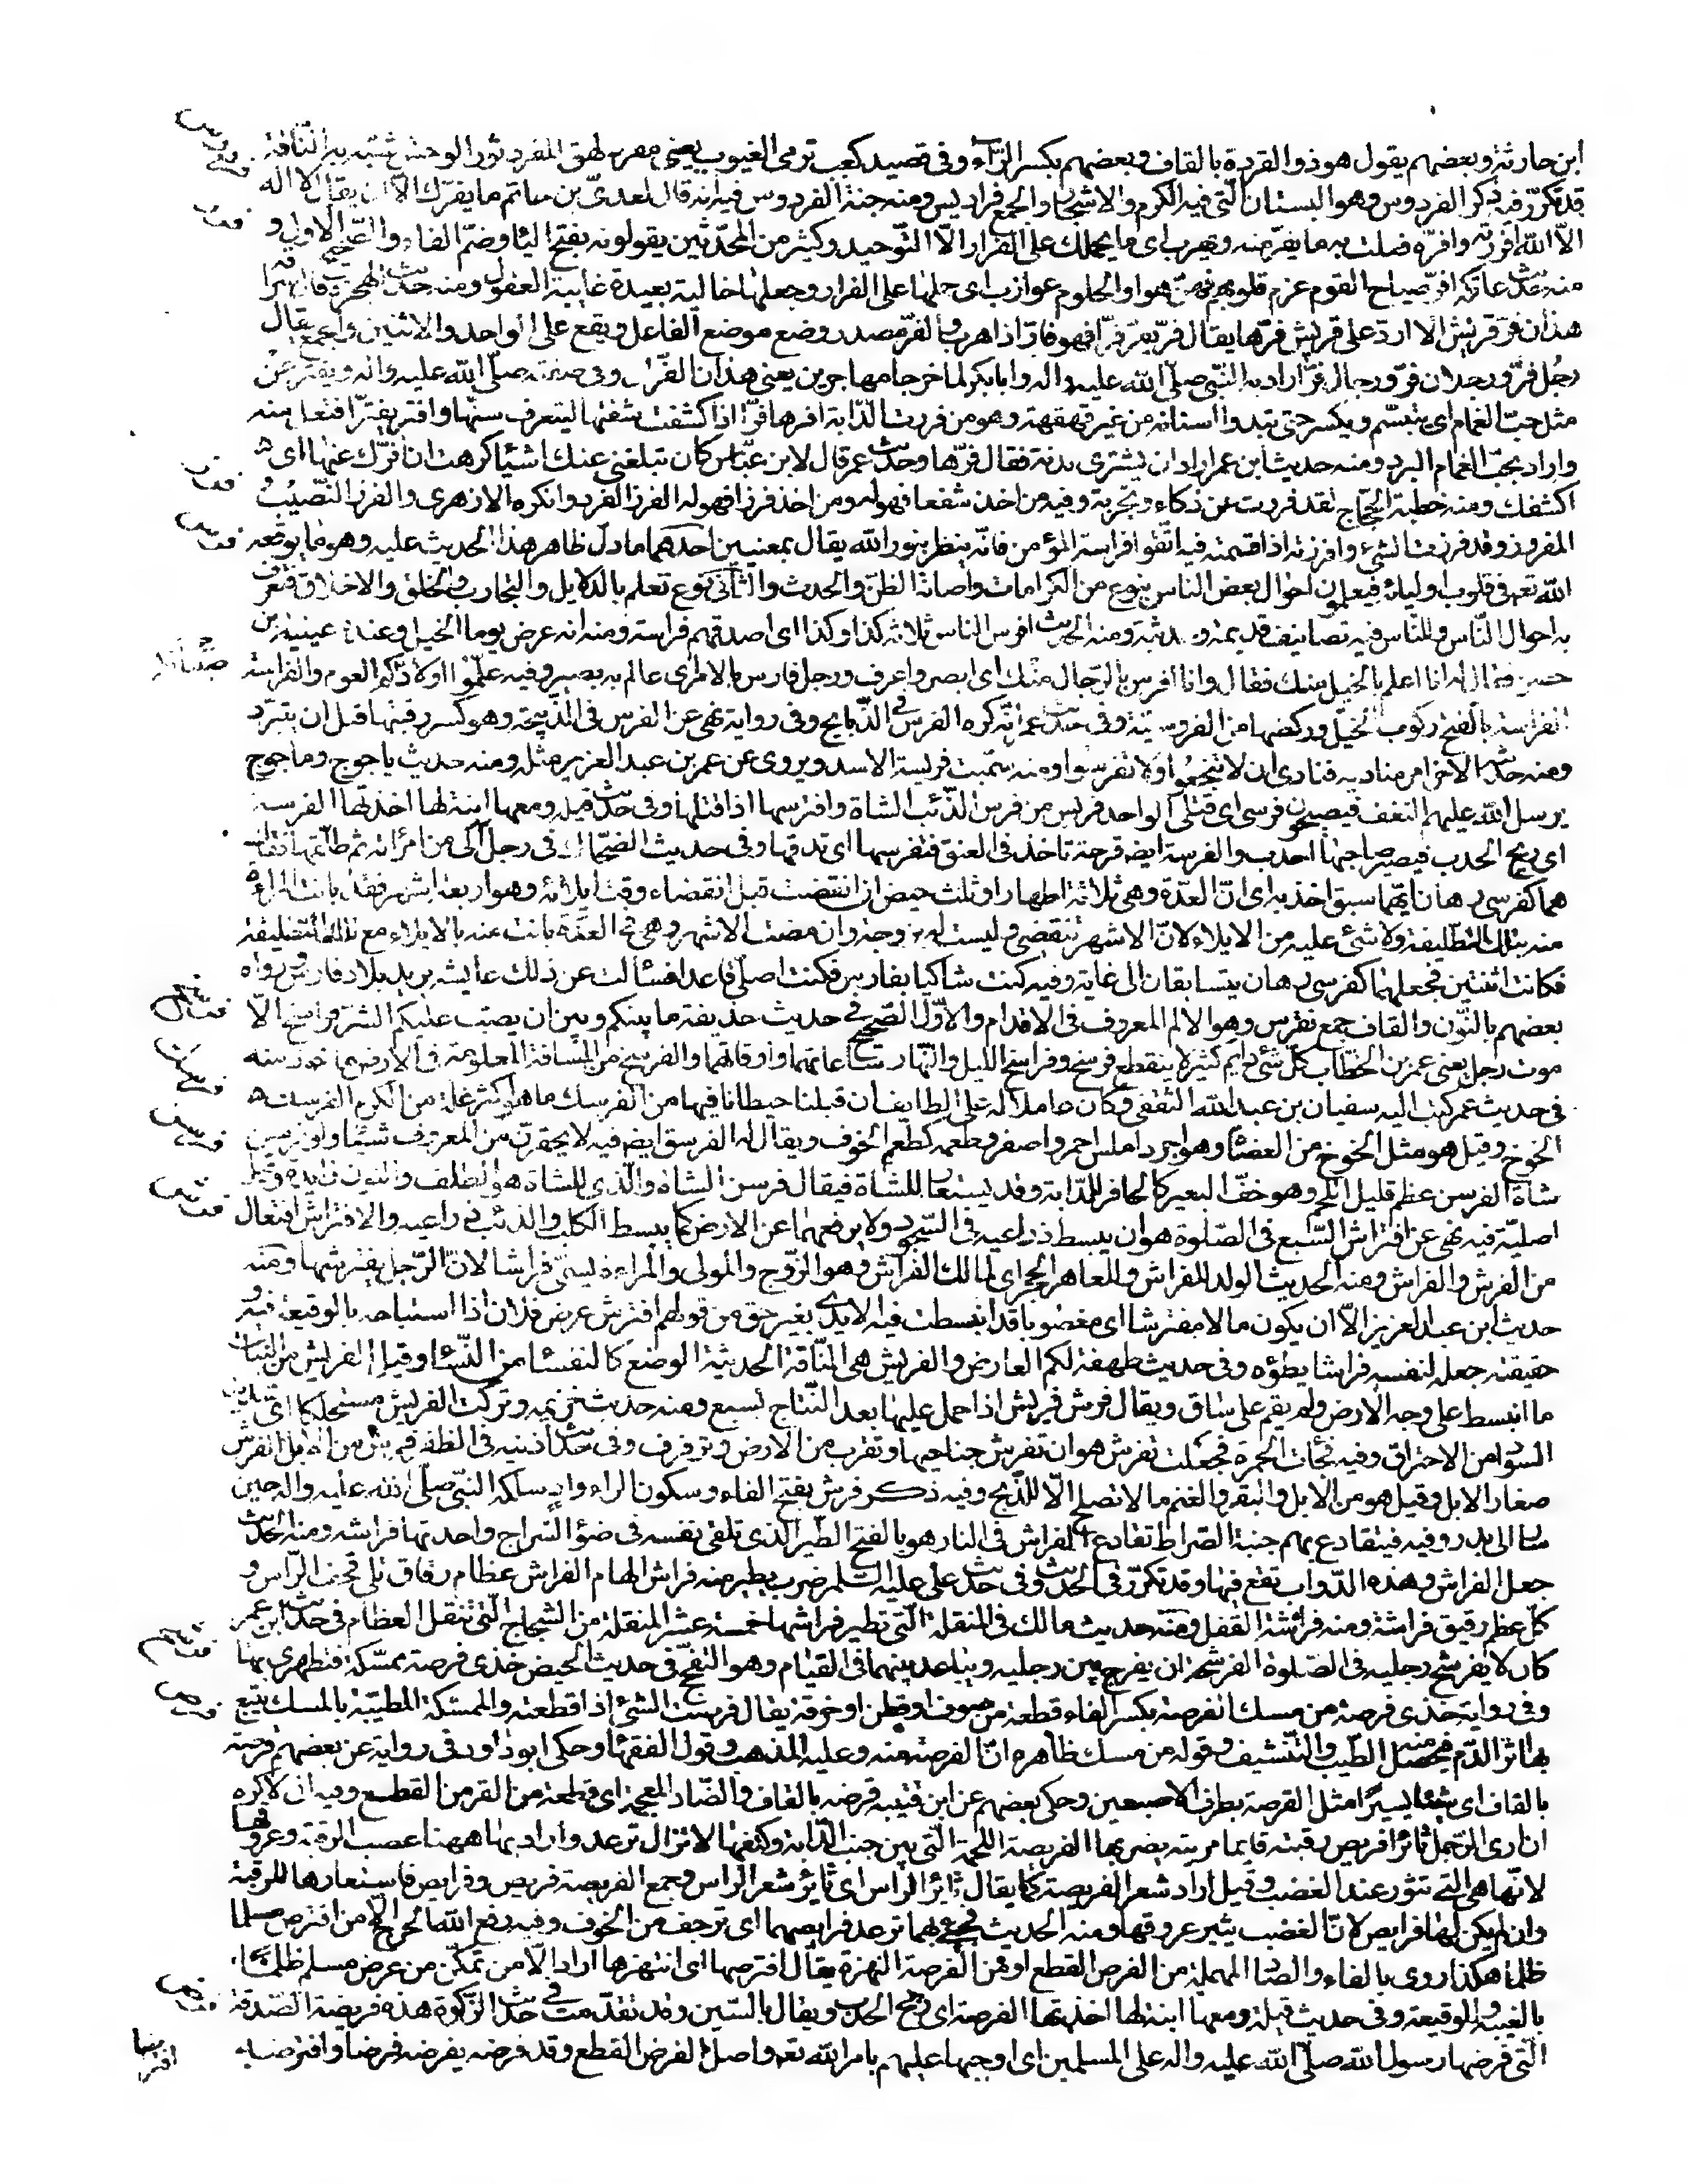 ابن حارثة وبعضهم يقول هو ذو القردة بالقاف وبعضهم بكسر الراء وفى قصيد كعب ترمى الغيوب بعينى مفرد لهق المفرد ثور الوحش شبه به الناقة
قد تكرر فيه ذكر الفردوس وهو البستان التى فيه الكرم والاشجار والجمع فراديس ومنه جنة الفردوس فيه انه قال لعدى بن حاتم ما يفرك الا ان يقال لا اله
الا الله افررته وافره فعلت به ما يفر منه ويهرب اى ما يحملك على الفرار الا التوحيد وكثير من المحدثين يقولونه بفتح اليا وضم الفاء والصحيح الاول و
منه حديث عاتكة افر صياح القوم عزم قلوبهم فهن هواء والحلوم عوازب اى حملها على الفرار وجعلها خالية بعيدة غايبة العقول ومنه حديث الهجرة قال سراقة
هذان فر قريش الا ارد على قريش فرها يقال فر يفر فرا فهو فار اذا هرب والفر مصدر وضع موضع الفاعل ويقع على الواحد والاثنين والجمع يقال
رجل فر ورجلان فر ورجال فر اراد به النبى صلى الله عليه واله وابا بكر لما خرجا مهاجرين يعنى هذان الفران وفى صفته صلى الله عليه واله ويفتر عن
مثل حب الغمام اى يتبسم ويكشر حتى تبدوا اسنانه من غير قهقهة وهو من فررت الدابة افرها فرا اذا كشفت شفتها ليتعرف سنها وافتر يفتر افتعل منه
واراد بحب الغمام البرد ومنه حديث ابن عمر اراد ان يشترى بدنة فقال فرها وحديث عمر قال لابن عباس كان تبلغنى عنك اشياء كرهت ان افرك عنها اى
اكشفك ومنه خطبة الحجاج لقد فررت عن ذكاء وتجربة وفيه من اخذ شفعا فهو له ومن اخذ فرزا فهو له الفرز الفرد وانكره الازهرى والفرز النصيب
المفروز وقد فرزت الشىء وافرزته اذا قسمته فيه اتقوا فراسة المؤمن فانه ينظر بنور الله يقال بمعنيين احدهما ما دل ظاهر هذا الحديث عليه وهو ما يوقعه
الله تعالى فى قلوب اوليائه فيعلمون احوال بعض الناس بنوع من الكرامات واصابة الظن والحدث والثانى نوع تعلم بالدلايل والتجارب والخلق والاخلاق فتعرف
به احوال الناس وللناس فيه تصانيف قديمة وحديثة ومنه الحديث افرس الناس ثلاثة كذا وكذا اى اصدقهم فراسة ومنه انه عرض يوما الخيل وعنده عيينة بن
حسن فقال له انا اعلم بالخيل منك فقال وانا افرس بالرجال منك اى ابصر واعرف ورجل فارس بالامر اى عالم به بصير وفيه علموا اولادكم العوم والفراسة
الفراسة بالفتح ركوب الخيل وركضها من الفروسية وفى حديث عمر انه كره الفرس فى الذبايح وفى رواية نهى عن الفرس فى الذبيحة وهو كسر رقبتها قبل ان تبرد
ومنه حديثه الاخر امر مناديه فنادى ان لا تنخعوا ولا تفرسوا ومنه سميت فريسة الاسد ويروى عن عمر بن عبد العزيز مثله ومنه حديث ياجوج وماجوج
يرسل الله عليهم النغف فيصبحون فرسى اى قتلى الواحد فريس من فرس الذئب الشاة وافترسها اذا قتلها وفى حديث قيلة ومعها ابنة لها اخذتها الفرسة
اى ريح الحدب فيصير صاحبها احدب والفرسة ايضا قرحة تاخذ فى العنق فتفرسها اى تدقها وفى حديث الضحاك فى رجل آلى من امرأته ثم طلقها فقال
هما كفرسى رهان ايهما سبق اخذ به اى ان العدة وهى ثلاثة اطهار او ثلث حيض ان انقضت قبل انقضاء وقت ايلائه وهو اربعة اشهر فقد بانت المراة
منه بتلك التطليقة ولا شئ عليه من الايلاء لان الاشهر تنقضى وليست له بزوجة وان مضت الاشهر وهى فى العدة بانت عنه بالايلاء مع تلك التطليقة
فكانت اثنتين فجعلهما كفرسى رهان يتسابقان الى غاية وفيه كنت شاكيا بفارس فكنت اصلى قاعدا فسألت عن ذلك عايشة يريد بلاد فارس ورواه
بعضهم بالنون والقاف جمع نقرس وهو الالم المعروف فى الاقدام والاول الصحيح فى حديث حذيفة ما بينكم وبين ان يصب عليكم الشر فراسخ الا
موت رجل يعنى عمر بن الخطاب كل شئ دايم كثير لا ينقطع فرسخ وفراسخ الليل والنهار ساعاتهما واوقاتهما والفرسخ من المسافة المعلومة فى الارض ماخوذ منه
فى حديث عمر كتب اليه سفيان بن عبد الله الثقفى وكان عاملا له على الطايف ان قبلنا حيطانا فيها من الفرسك ما هو اكثر غلة من الكرم الفرسك
الخوخ وقيل هو مثل الخوخ من العضاه وهو اجرد املس احمر واصفر وطعمه كطعم الخوخ ويقال له الفرسق ايضا فيه لا يحقرن من المعروف شيئا ولو فرسن
شاة الفرسن عظم قليل اللحم وهو خف البعير كالحافر للدابة وقد يستعار للشاة فيقال فرسن الشاة والذى للشاة هو الظلف والنون زايدة وقيل
اصلية فيه نهى عن افتراش السبع فى الصلوة هو ان يبسط ذراعيه فى السجود ولا يرفعهما عن الارض كما يبسط الكلب والذئب ذراعيه والافتراش افتعال
من الفرش والفراش ومنه الحديث الولد للفراش وللعاهر الحجر اى لمالك الفراش وهو الزوج والمولى والمراة يسمى فراشا لان الرجل يفترشها ومنه
حديث ابن عبد العزيز الا ان يكون مالا مفترشا اى مغصوبا قد انبسطت فيه الايدى بغير حق من قولهم افترش عرض فلان اذا استباحه بالوقيعة فيه و
حقيقته جعله لنفسه فراشا يطؤه وفى حديث طهفة لكم العارض والفريش هى الناقة الحديثة الوضع كالنفسا من النسا وقيل الفريش من النبات
ما انبسط على وجه الارض ولم يقم على ساق ويقال فرس فريش اذا حمل عليها بعد النتاج بسبع ومنه حديث خزيمة وتركت الفريش مستحلكا اى شديد
السواد من الاحتراق وفيه فجائت الحمرة فجعلت تفرش هو ان تفرش جناحيها وتقرب من الارض وترفرف وفى حديث اذينة فى الظفر فرش من الابل الفرش
صغار الابل وقيل هو من الابل والبقر والغنم ما لا تصلح الا للذبح وفيه ذكر فرش بفتح الفاء وسكون الراء واد سلكه النبى صلى الله عليه واله حين
سار الى بدر وفيه فيتقادع بهم جنبة الصراط تقادع الفراش فى النار هو بالفتح الطير الذى تلقى نفسه فى ضوء السراج واحدتها فراشة ومنه الحديث
جعل الفراش وهذه الدواب تقع فيها وقد تكرر فى الحديث وفى حديث على عليه السلم ضرب يطير منه فراش الهام الفراش عظام رقاق تلى قحف الراس و
كل عظم رقيق فراشة ومنه فراشة القفل ومنه حديث مالك فى المنقلة التى تطير فراشها خمسة عشر المنقلة من الشجاج التى تنقل العظام فى حديث ابن عمر
كان لا يفرشح رجليه فى الصلوة الفرشحة ان يفرج بين رجليه ويباعد بينهما فى القيام وهو التفحج فى حديث الحيض خذى فرصة ممسكة فتطهرى بها
وفى رواية خذى فرصة من مسك الفرصة بكسر الفاء قطعة من صوف او قطن او خرقة يقال فرصت الشئ اذا قطعته والممسكة المطيبة بالمسك يتبع
بها اثر الدم فيحصل منه الطيب والتنشيف وقوله من مسك ظاهره ان الفرصة منه وعليه المذهب وقول الفقها وحكى ابو داود فى رواية عن بعضهم قرصة
بالقاف اى شيئا يسيرا مثل القرصة بطرف الاصبعين وحكى بعضهم عن ابن قتيبة قرضة بالقاف والضاد المعجمة اى قطعة من القرض القطع وفيه انى لاكره
ان ارى الرجل ثائرا فريص رقبته قايما على مريته يضربها الفريصة اللحمة التى بين جنب الدابة وكتفها لا تزال ترعد واراد بها ههنا عصب الرقبة وعروقها
لانها هى التى تثور عند الغضب وقيل اراد شعر الفريصة كما يقال ثائر الراس اى ثائر شعر الراس وجمع الفريصة فريص وفرايص فاستعارها للرقبة
وان لم يكن لها فرايص لان الغضب يثير عروقها ومنه الحديث فجئ بهما ترعد فرايصهما اى ترجف من الخوف وفيه رفع الله الحرج الا من افترص مسلما
ظلما هكذا روى بالفاء والصاد المهملة من الفرص القطع او من الفرصة النهزة يقال افترصها اى انتهزها اراد الا من تمكن من عرض مسلم ظلما
بالغيبة والوقيعة وفى حديث قيلة ومعها ابنة لها اخذتها الفرصة اى ريح الحدب ويقال بالسين وقد تقدمت فى حديث الزكوة هذه فريضة الصدقة
التى فرضها رسول الله صلى الله عليه واله على المسلمين اى اوجبها عليهم بامر الله تعالى واصل الفرض القطع وقد فرضه يفرضه فرضا وافترضه
افتراضا